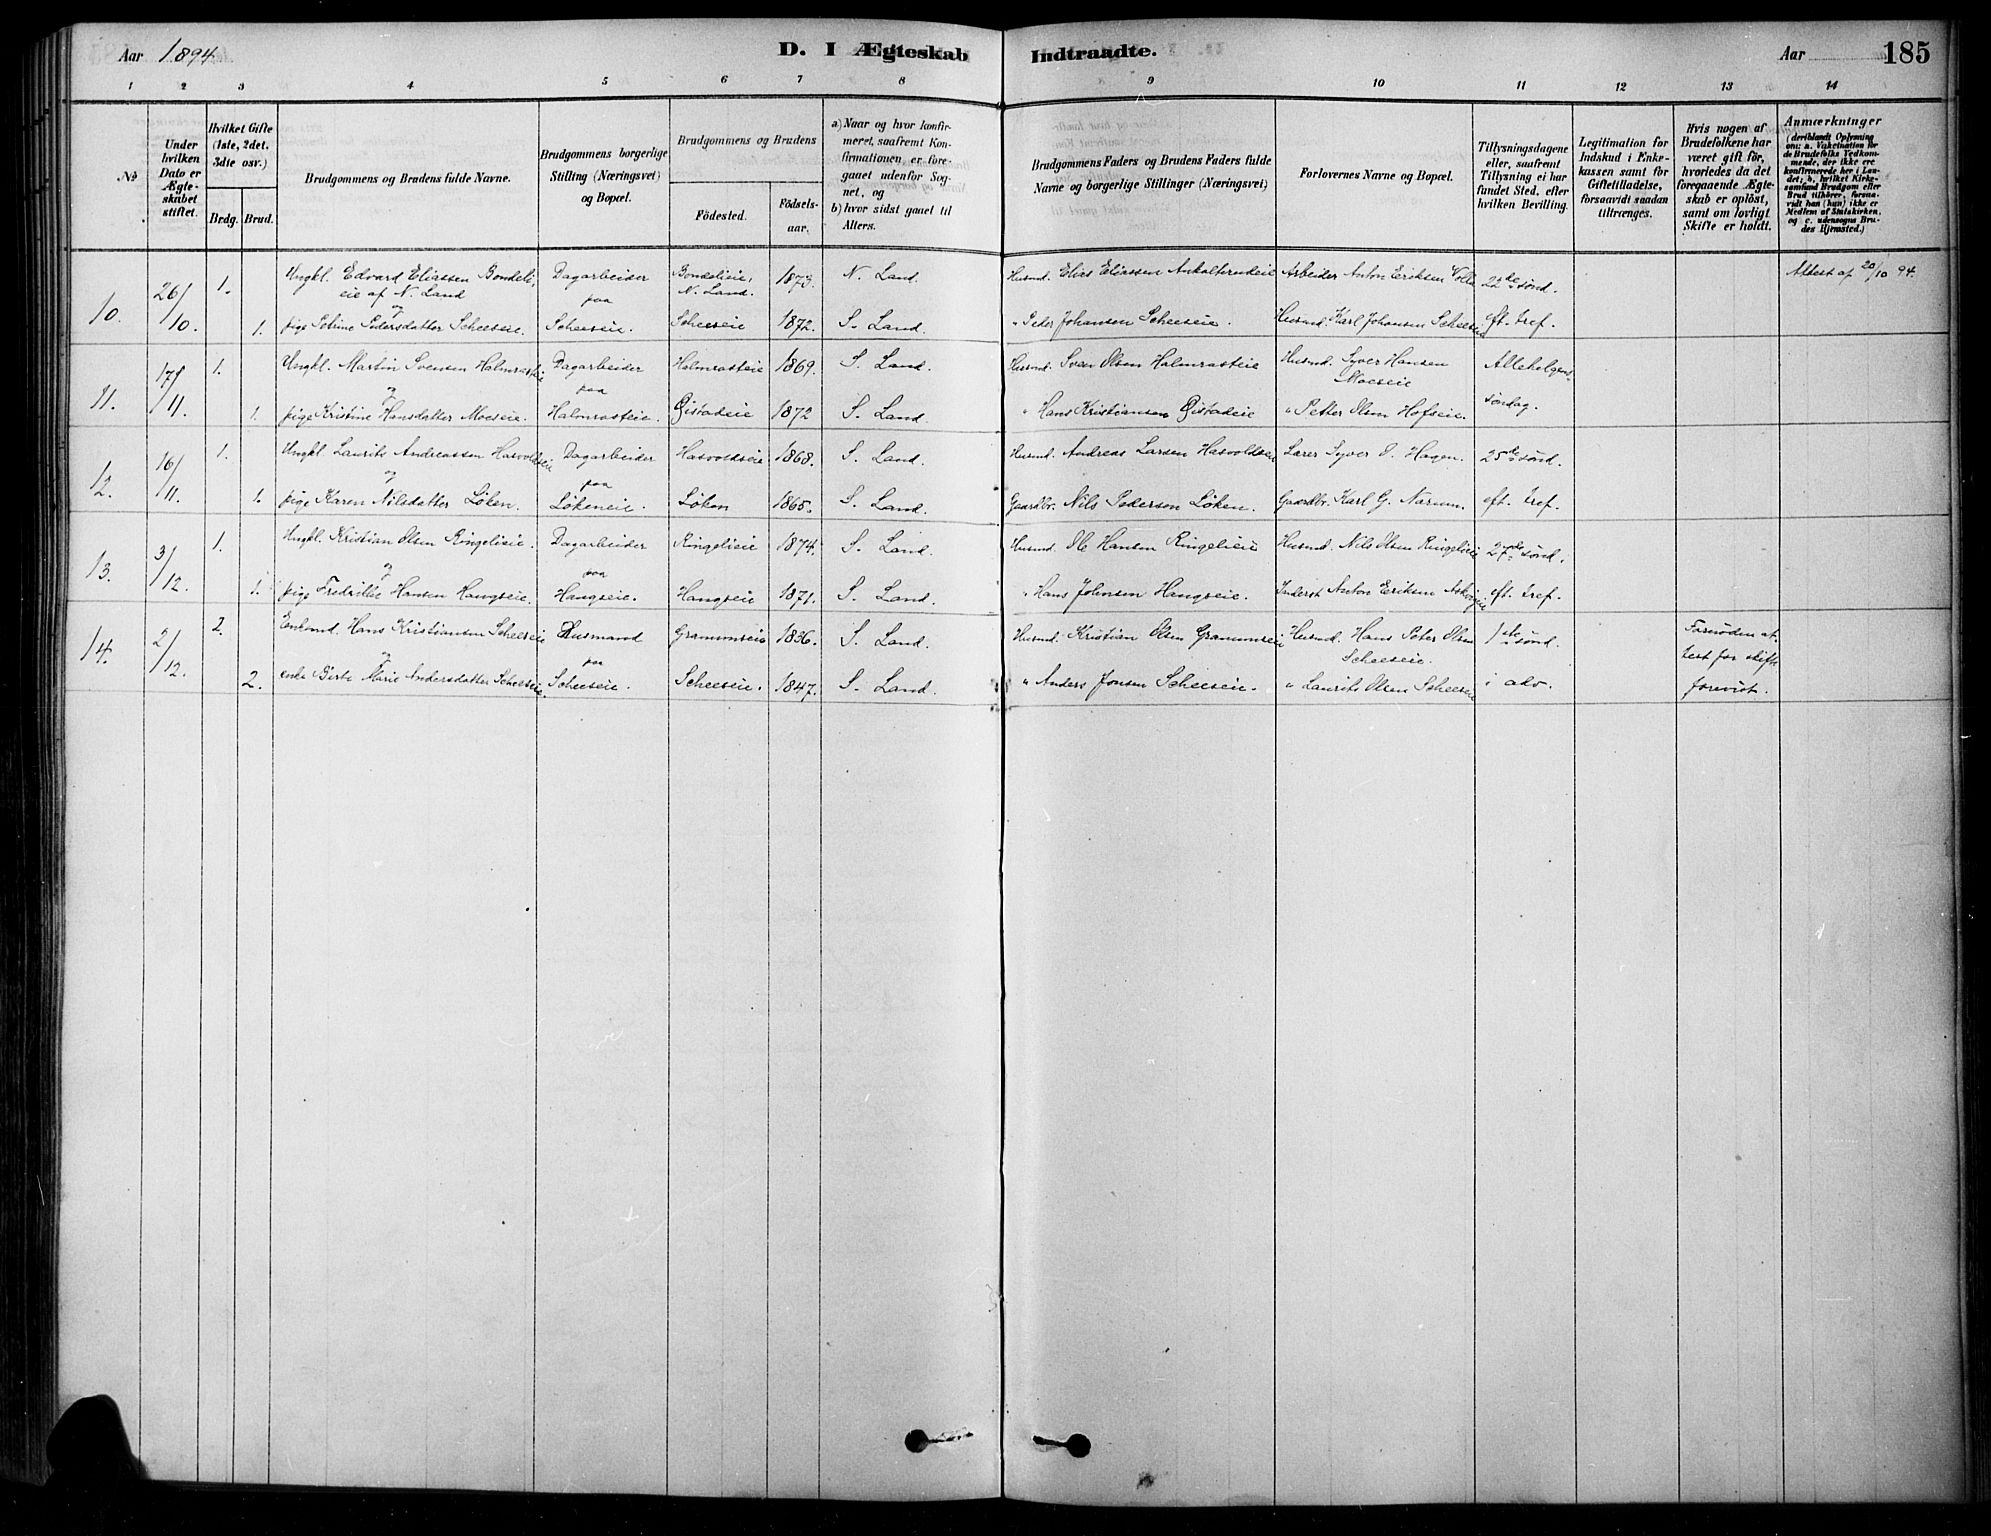 Aar 1894.
D. I Ægteskab Indtraadte.
Aar 185
1 2 3 4 5 6 7 8 9 10 11 12 13 14
No
Under hvilken Dato er Ægteskabet stiftet.
Hvilket Gifte (1ste, 2det, 3die osv.)
Brdg. Brud.
Brudgommens og Brudens fulde Navne.
Brudgommens borgerlige Stilling (Næringsvei) og Bopæl.
Brudgommens og Brudens
Födested.
Födsels-aar.
a) Naar og hvor konfirmeret, saafremt Konfirmationen er foregaaet udenfor Sognet, og
b) hvor sidst gaaet til Alters.
Brudgommens Faders og Brudens Faders fulde Navne og borgerlige Stillinger (Næringsvei)
Forlovernes Navne og Bopæl.
Tillysningsdagene eller, saafremt Tillysning ei har fundet Sted, efter hvilken Bevilling.
Legitimation for Indskud i Enkekassen samt for Giftetilladelse, forsaavidt saadan tiltrænges.
Hvis nogen af Brudefolkene har været gift för, hvorledes da det foregaaende Ægteskab er oplöst, samt om lovligt Skifte er holdt.
Anmærkninger
(deriblandt Oplysning om: a. Vakcination for de Brudefolks Vedkommende, der ikke ere konfirmerede her i Landet; b. hvilket Kirkesamfund Brudgom eller Brud tilhörer, forsaavidt han (hun) ikke er Medlem af Statskirken, og c. udensogns Brudes Hjemsted.)
10. 26/10. 1. Ungkl. Edvard Eliassen Bondeli, eie af N. Land Dagarbeider Bondelieie, N. Land. 1873. N. Land. Husmd. Elias Eliassen Arbeider Anton Eriksen Volla 22de sønd. Attest af 20/10 94.
og paa
1. pige Petrine Pedersdatter Scheeseie. Scheeseie. Scheeseie 1872. S. Land. " Peder Johansen Scheeseie. Husmd. Karl Johansen Scheeseie eft. tref.
11. 17/11. 1. Ungkl. Martin Svensen Halmrasteie Dagarbeider Halmrasteie 1869. S. Land. Husmd. Sven Olsen Halmrasteie Husmd. Syver Hansen Moeseie Allehelgens-
og paa
1. pige Kristine Hansdatter Moeseie. Halmrasteie. Gistadeie 1872 S. Land. " Hans Kristiansen Gistadeie " Petter Olsen Hofseie. søndag.
12. 16/11. 1. Ungkl. Laurits Andreassen Hasvoldseie Dagarbeider Hasvoldseie 1868. S. Land. Husmd. Andreas Larsen Hasvoldseie Lærer Syver O. Hagen. 25de sønd.
og paa
1. pige Karen Nilsdatter Løken. Løkeneie. Løken 1865. S. Land. Gaardbr. Nils Pederson Løken. Gaardbr. Karl G. Narum. eft. tref.
13. 3/12. 1. Ungkl. Kristian Olsen Ringelieie. Dagarbeider Ringelieie 1874. S. Land. Husmd. Ole Hansen Ringelieie Husmd. Nils Olsen Ringelieie 27de sønd.
og paa
1. pige Fredrikke Hansen Hangseie. Hangseie. Hangseie 1871. S. Land. " Hans Johnsen Hangseie. Inderst Anton Eriksen eft. tref.
14. 2/12. 2. Enkmd. Hans Kristiansen Scheeseie Husmand Grammseie 1836. S. Land. Husmd. Kristian Olsen Grammseie Husmd. Hans Peter Olsen Scheeseie. 1ste sønd. Fornøden attest for skifte
og paa
2. enke Birte Marie Andersdatter Scheeseie. Scheeseie. Scheeseie. 1847. S. Land. " Anders Jonsen Scheeseie. " Laurits Olsen Scheeseie i adv. forevist.